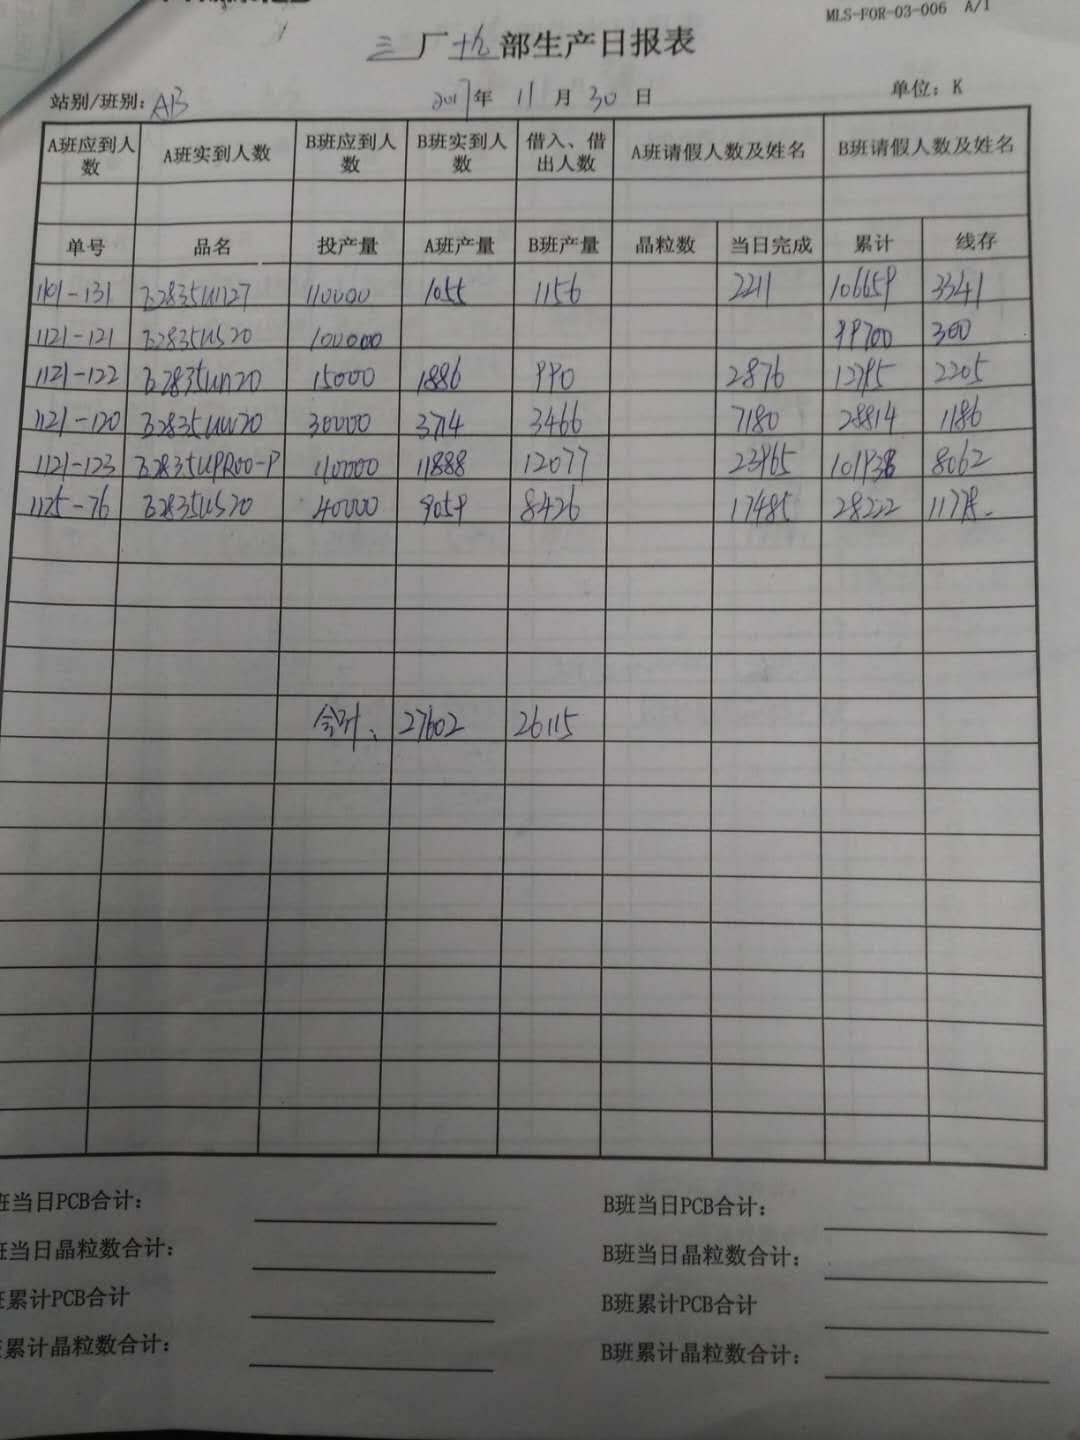 MLS-FOR-03-006 A/1
三厂十九部生产日报表
站别/班别: AB 2017年 11月 30日 单位: K
A班应到人数 A班实到人数 B班应到人数 B班实到人数 借入、借出人数 A班请假人数及姓名 B班请假人数及姓名
单号 品名 投产量 A班产量 B班产量 晶粒数 当日完成 累计 线存
1101-131 110000 1055 1156 2211 106659 3341
1121-121 100000 99700 300
1121-122 15000 1886 990 2876 12795 2205
1121-120 30000 3714 3466 7180 28814 1186
1121-123 110000 11888 12077 23965 101938 8062
1125-76 40000 9059 8426 17485 28222 11778
合计: 27602 26115
班当日PCB合计: B班当日PCB合计:
班当日晶粒数合计: B班当日晶粒数合计:
班累计PCB合计 B班累计PCB合计
累计晶粒数合计: B班累计晶粒数合计: